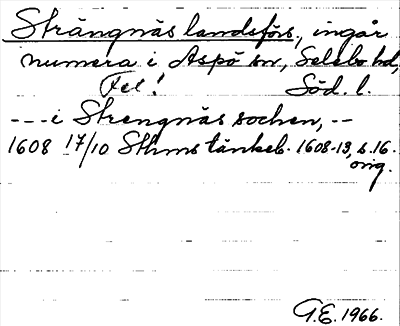 Strängnäs landsförs., ingår
numera i Aspö sn, Selebo hd,
Fel! Söd. l.
--- i Strengnäs sochen, --
1608 17/10 Sthms tänkeb. 1608-13, s. 16.
orig.
G.E. 1966.